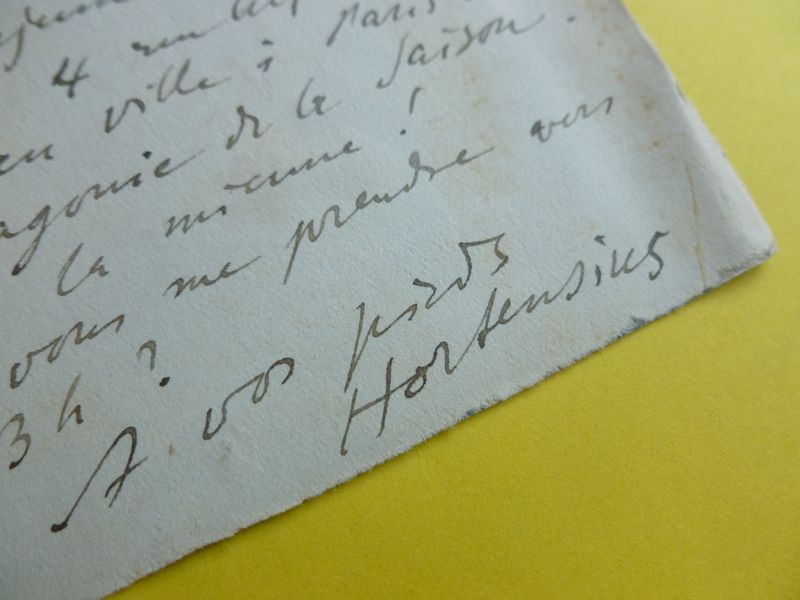 4 rue
en ville à Paris
agonie de la Saison.
la mienne !
vous me prendre vers
3h ?
A vos pieds
Hortensius